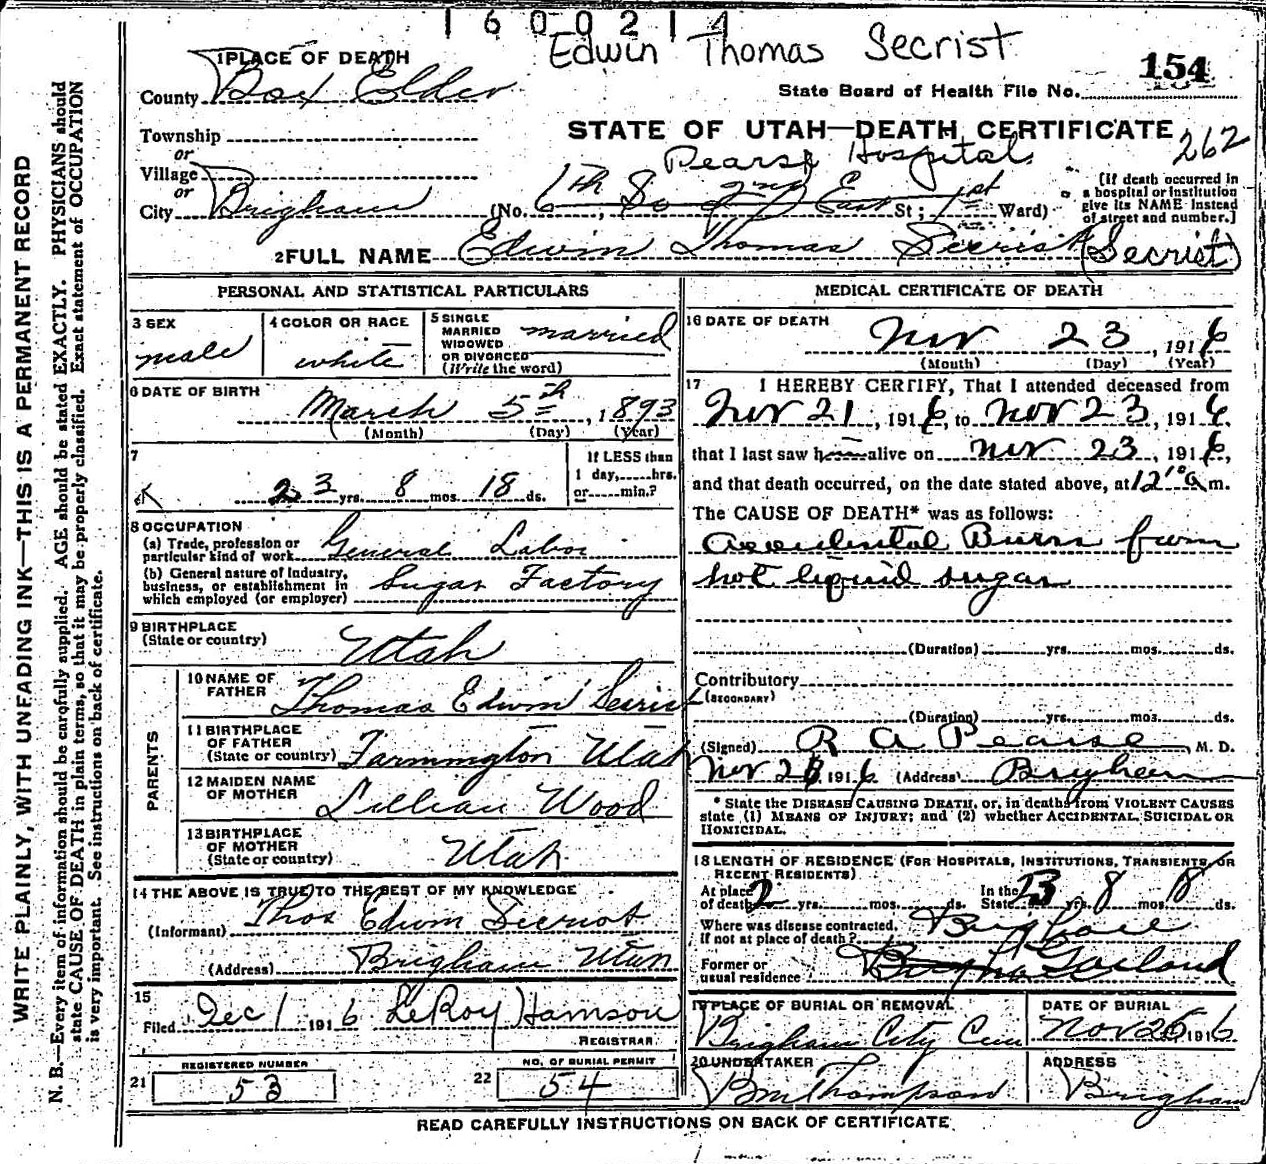 1 6 0 0 2 1 4
Edwin Thomas Secrist
154
1 PLACE OF DEATH
County Box Elder
State Board of Health File No.
Township
or
STATE OF UTAH—DEATH CERTIFICATE
262
Village
or
Pearse Hospital
City Brigham
(No. 6th So 2nd East St; 1st Ward)
(If death occurred in
a hospital or institution
give its NAME instead
of street and number.]
2 FULL NAME Edwin Thomas Secrist (Secrist)
PERSONAL AND STATISTICAL PARTICULARS
3 SEX
male
4 COLOR OR RACE
white
5 SINGLE
MARRIED
WIDOWED
OR DIVORCED
(Write the word)
married
6 DATE OF BIRTH
March 5th, 1893
(Month) (Day) (Year)
7
23 yrs. 8 mos. 18 ds.
If LESS than
1 day, hrs.
or min.?
8 OCCUPATION
(a) Trade, profession or
particular kind of work General Labor
(b) General nature of Industry,
business, or establishment in
which employed (or employer) Sugar Factory
9 BIRTHPLACE
(State or country) Utah
PARENTS
10 NAME OF
FATHER Thomas Edwin Secrist
11 BIRTHPLACE
OF FATHER
(State or country) Farmington Utah
12 MAIDEN NAME
OF MOTHER Lillian Wood
13 BIRTHPLACE
OF MOTHER
(State or country) Utah
14 THE ABOVE IS TRUE TO THE BEST OF MY KNOWLEDGE
(Informant) Thos Edwin Secrist
(Address) Brigham Utah
15
Filed Dec 1 1916 LeRoy
REGISTRAR
REGISTERED NUMBER
21 53
NO. OF BURIAL PERMIT
22 54
MEDICAL CERTIFICATE OF DEATH
16 DATE OF DEATH
Nov 23, 1916
(Month) (Day) (Year)
17 I HEREBY CERTIFY, That I attended deceased from
Nov 21, 1916, to Nov 23, 1916.
that I last saw him alive on Nov 23, 1916,
and that death occurred, on the date stated above, at 12 10 a m.
The CAUSE OF DEATH* was as follows:
Accidental Burns from
hot liquid sugar
(Duration) yrs. mos. ds.
Contributory
(SECONDARY)
(Duration) yrs. mos. ds.
(Signed) R A Pearse, M. D.
Nov 1916 (Address) Brigham
* State the DISEASE CAUSING DEATH, or, in deaths from VIOLENT CAUSES
state (1) MEANS OF INJURY; and (2) whether ACCIDENTAL, SUICIDAL OR
HOMICIDAL.
18 LENGTH OF RESIDENCE (FOR HOSPITALS, INSTITUTIONS, TRANSIENTS, OR
RECENT RESIDENTS)
At place
of death 2 yrs. mos. ds.
In the
State 23 yrs. 8 mos. 18 ds.
Where was disease contracted,
if not at place of death?
Former or
usual residence Garland
19 PLACE OF BURIAL OR REMOVAL
Brigham City Cem
DATE OF BURIAL
Nov 26 1916
20 UNDERTAKER
Thompson
ADDRESS
Brigham
READ CAREFULLY INSTRUCTIONS ON BACK OF CERTIFICATE
WRITE PLAINLY, WITH UNFADING INK—THIS IS A PERMANENT RECORD
N. B.—Every item of information should be carefully supplied. AGE should be stated EXACTLY. PHYSICIANS should
state CAUSE OF DEATH in plain terms, so that it may be properly classified. Exact statement of OCCUPATION
is very important. See instructions on back of certificate.